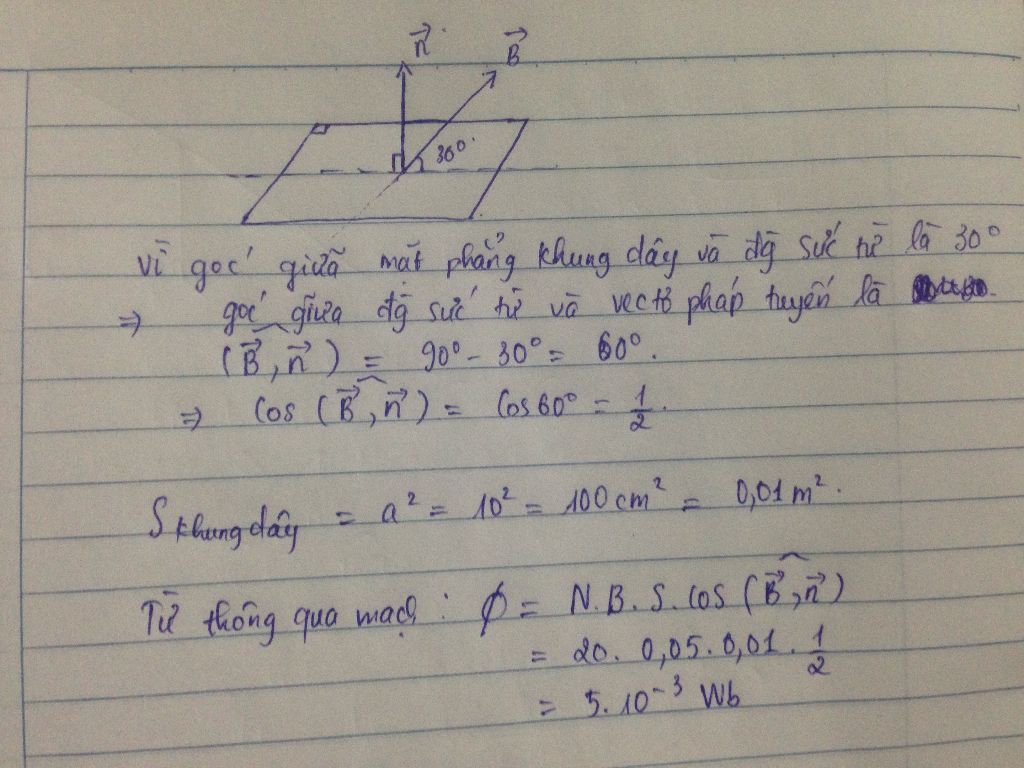 n⃗ B⃗
30°
Vì góc giữa mặt phẳng khung dây và đg sức từ là 30°
⇒ góc giữa đg sức từ và vectơ pháp tuyến là
(B⃗,n⃗) = 90° - 30° = 60°.
⇒ Cos (B⃗,n⃗) = Cos60° = 1/2.
S khung dây = a² = 10² = 100 cm² = 0,01 m².
Từ thông qua mạch : ϕ = N.B.S.cos (B⃗,n⃗)
= 20. 0,05. 0,01. 1/2
= 5.10⁻³ Wb